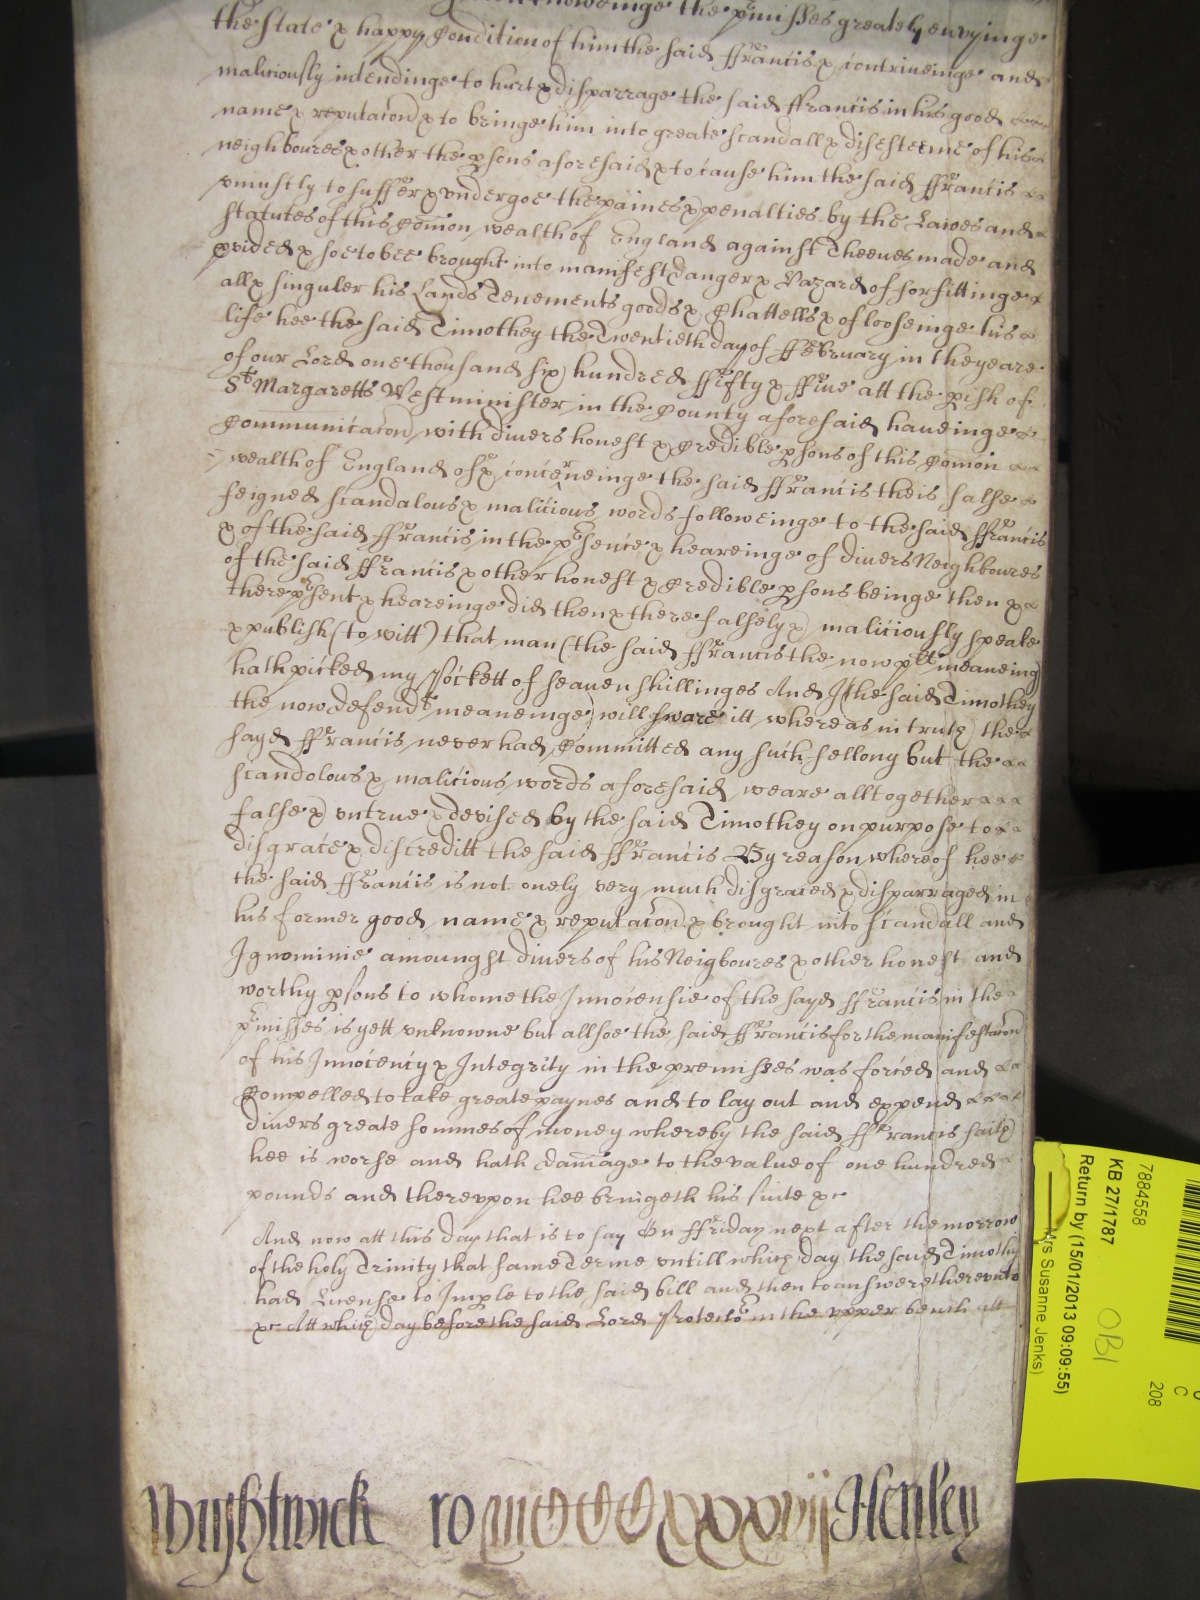 knoweinge the p'misses greately envyinge
the state & happy Condition of him the said ffrancis & contriveinge and
maliciously intendinge to hurt & disparrage the said ffrancis in his good
name & reputacon & to bringe him into greate scandall & disesteeme of his
neighboures & other the psons aforesaid & to cause him the said ffrancis
uniustly to suffer & undergoe the paines & penalties by the Lawes and
Statutes of this Comon wealth of England against Theeves made and
pvided & soe to bee brought into manifest danger & Hazard of forfittinge
all & singuler his Lands Tenements goods & Chattells & of looseinge his
life hee the said Timothey the Twentieth day of ffebruary in the yeare
of our Lord one thousand six hundred ffifty & ffive att the pish of
St Margaretts Westminister in the County aforesaid haveinge
Communicacon with divers honest & Credible psons of this Comon
wealth of England of & concerneinge the said ffrancis theis false
feigned scandalous & malicious words followeinge to the said ffrancis
& of the said ffrancis in the p'sence & heareinge of divers Neighboures
of the said ffrancis & other honest & Credible psons beinge then &
there p'sent & heareinge did then & there falsely & maliciously speake
& publish (to witt) that man (the said ffrancis the now plt meaneing)
hath picked my Pockett of seaven shillinges And I (the said Timothey
the now defendt meaneinge) will sware itt whereas in truth the
sayd ffrancis never had Committed any such fellony but the
scandolous & malicious words aforesaid weare alltogether
false & untrue & devised by the said Timothey on purpose to
disgrace & discreditt the said ffrancis By reason whereof hee
the said ffrancis is not onely very much disgraced & disparraged in
his former good name & reputacon & brought into scandall and
Ignominie amoungst divers of his Neigboures & other honest and
worthy psons to whome the Innocensie of the sayd ffrancis in the
p'misses is yett unknowne but allsoe the said ffrancis for the manifestacon
of his Innocency & Integrity in the premisses was forced and
Compelled to take greate paynes and to lay out and expend
divers greate sommes of money whereby the said ffrancis saith
hee is worse and hath damage to the value of one hundred
pounds and thereuppon hee bringeth his suite &c
And now att this day that is to say On ffriday next after the morrow
of the holy Trinity that same Terme untill which day the said Timothy
had License to Imple to the said bill and then to answere thereunto
&c Att which day before the said Lord Protector in the upper bench att
Wightwick ro mCCCCxxxvij Henley
7884558
KB 27/1787
Return by (15/01/2013 09:09:55)
Mrs Susanne Jenks)
OB1
C
208